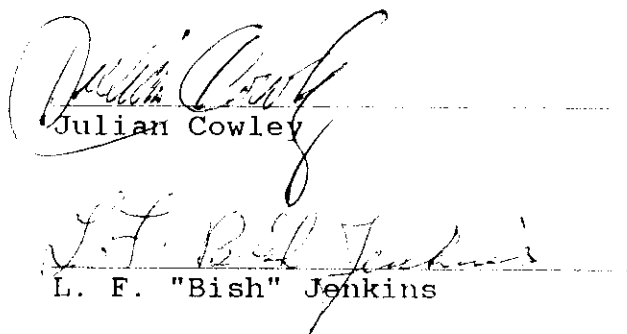 Julian Cowley
Julian Cowley
L. F. Bish Jenkins
L. F. "Bish" Jenkins